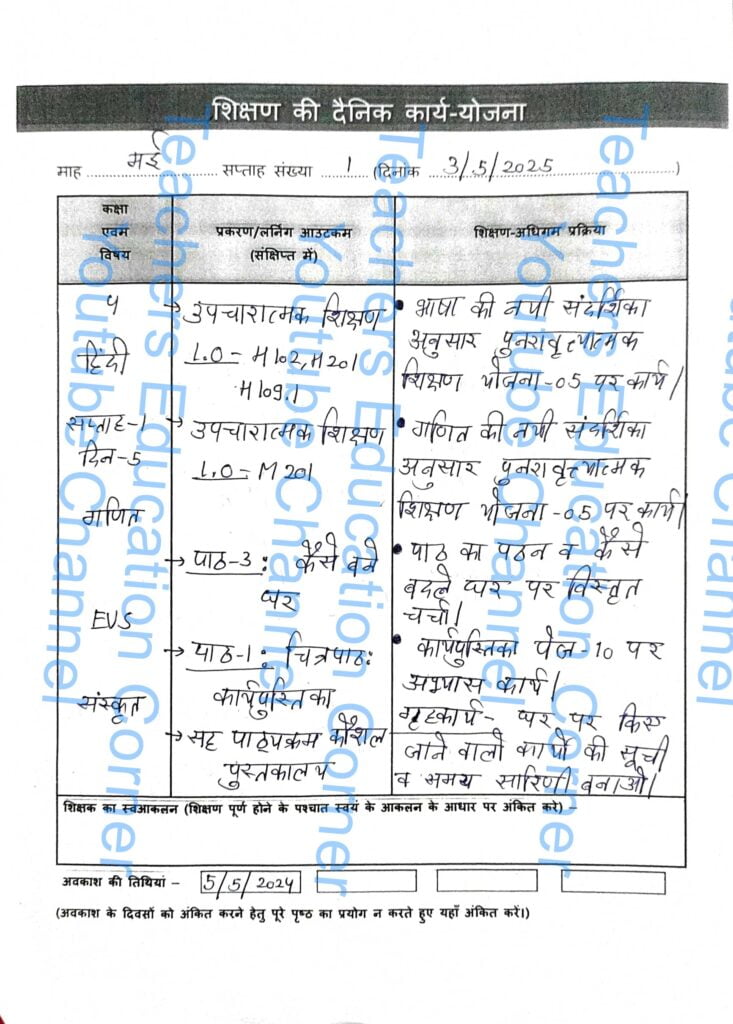 शिक्षण की दैनिक कार्य-योजना
माह मई सप्ताह संख्या 1 (दिनांक 3/5/2025)
कक्षा
एवम
विषय
प्रकरण/लर्निंग आउटकम
(संक्षिप्त में)
शिक्षण-अधिगम प्रक्रिया
5
हिंदी
सप्ताह-1
दिन-5
गणित
EVS
संस्कृत
→ उपचारात्मक शिक्षण
L.O - H102, H201
H109.1
→ उपचारात्मक शिक्षण
L.O - M201
→ पाठ-3: कैसे बने
घर
→ पाठ-1: चित्रपाठ:
कार्यपुस्तिका
→ सह पाठ्यक्रम कौशल
पुस्तकालय
• भाषा की नयी संदर्शिका
अनुसार पुनरावृत्यात्मक
शिक्षण योजना-05 पर कार्य।
• गणित की नयी संदर्शिका
अनुसार पुनरावृत्यात्मक
शिक्षण योजना-05 पर कार्य।
• पाठ का पठन व कैसे
बदले घर पर विस्तृत
चर्चा।
• कार्यपुस्तिका पेज-10 पर
अभ्यास कार्य।
गृहकार्य- घर पर किए
जाने वालो कार्यो की सूची
व समय सारिणी बनाओ।
शिक्षक का स्वआकलन (शिक्षण पूर्ण होने के पश्चात स्वयं के आकलन के आधार पर अंकित करे) –
अवकाश की तिथियां – 5/5/2024
(अवकाश के दिवसों को अंकित करने हेतु पूरे पृष्ठ का प्रयोग न करते हुए यहाँ अंकित करें।)
Teachers Education Corner
Youtube Channel
Teachers Education Corner
Youtube Channel
Teachers Education Corner
Youtube Channel